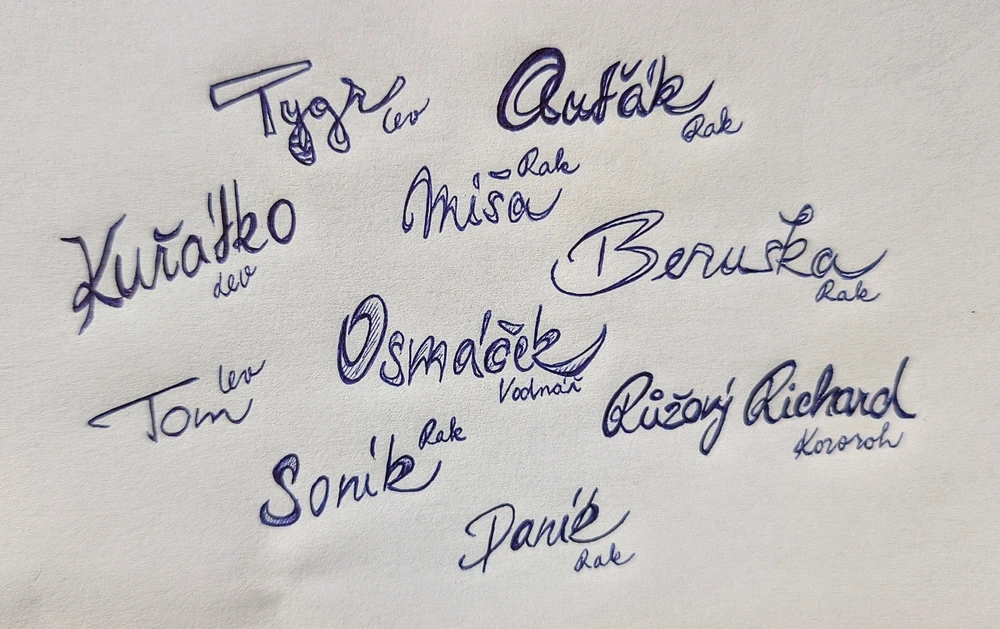 Tygr
lev
Auťák
Rak
Míša
Rak
Kuřátko
lev
Beruška
Rak
Osmáček
Vodnář
Tom
lev
Růžový Richard
Kozoroh
Soník
Rak
Daník
Rak